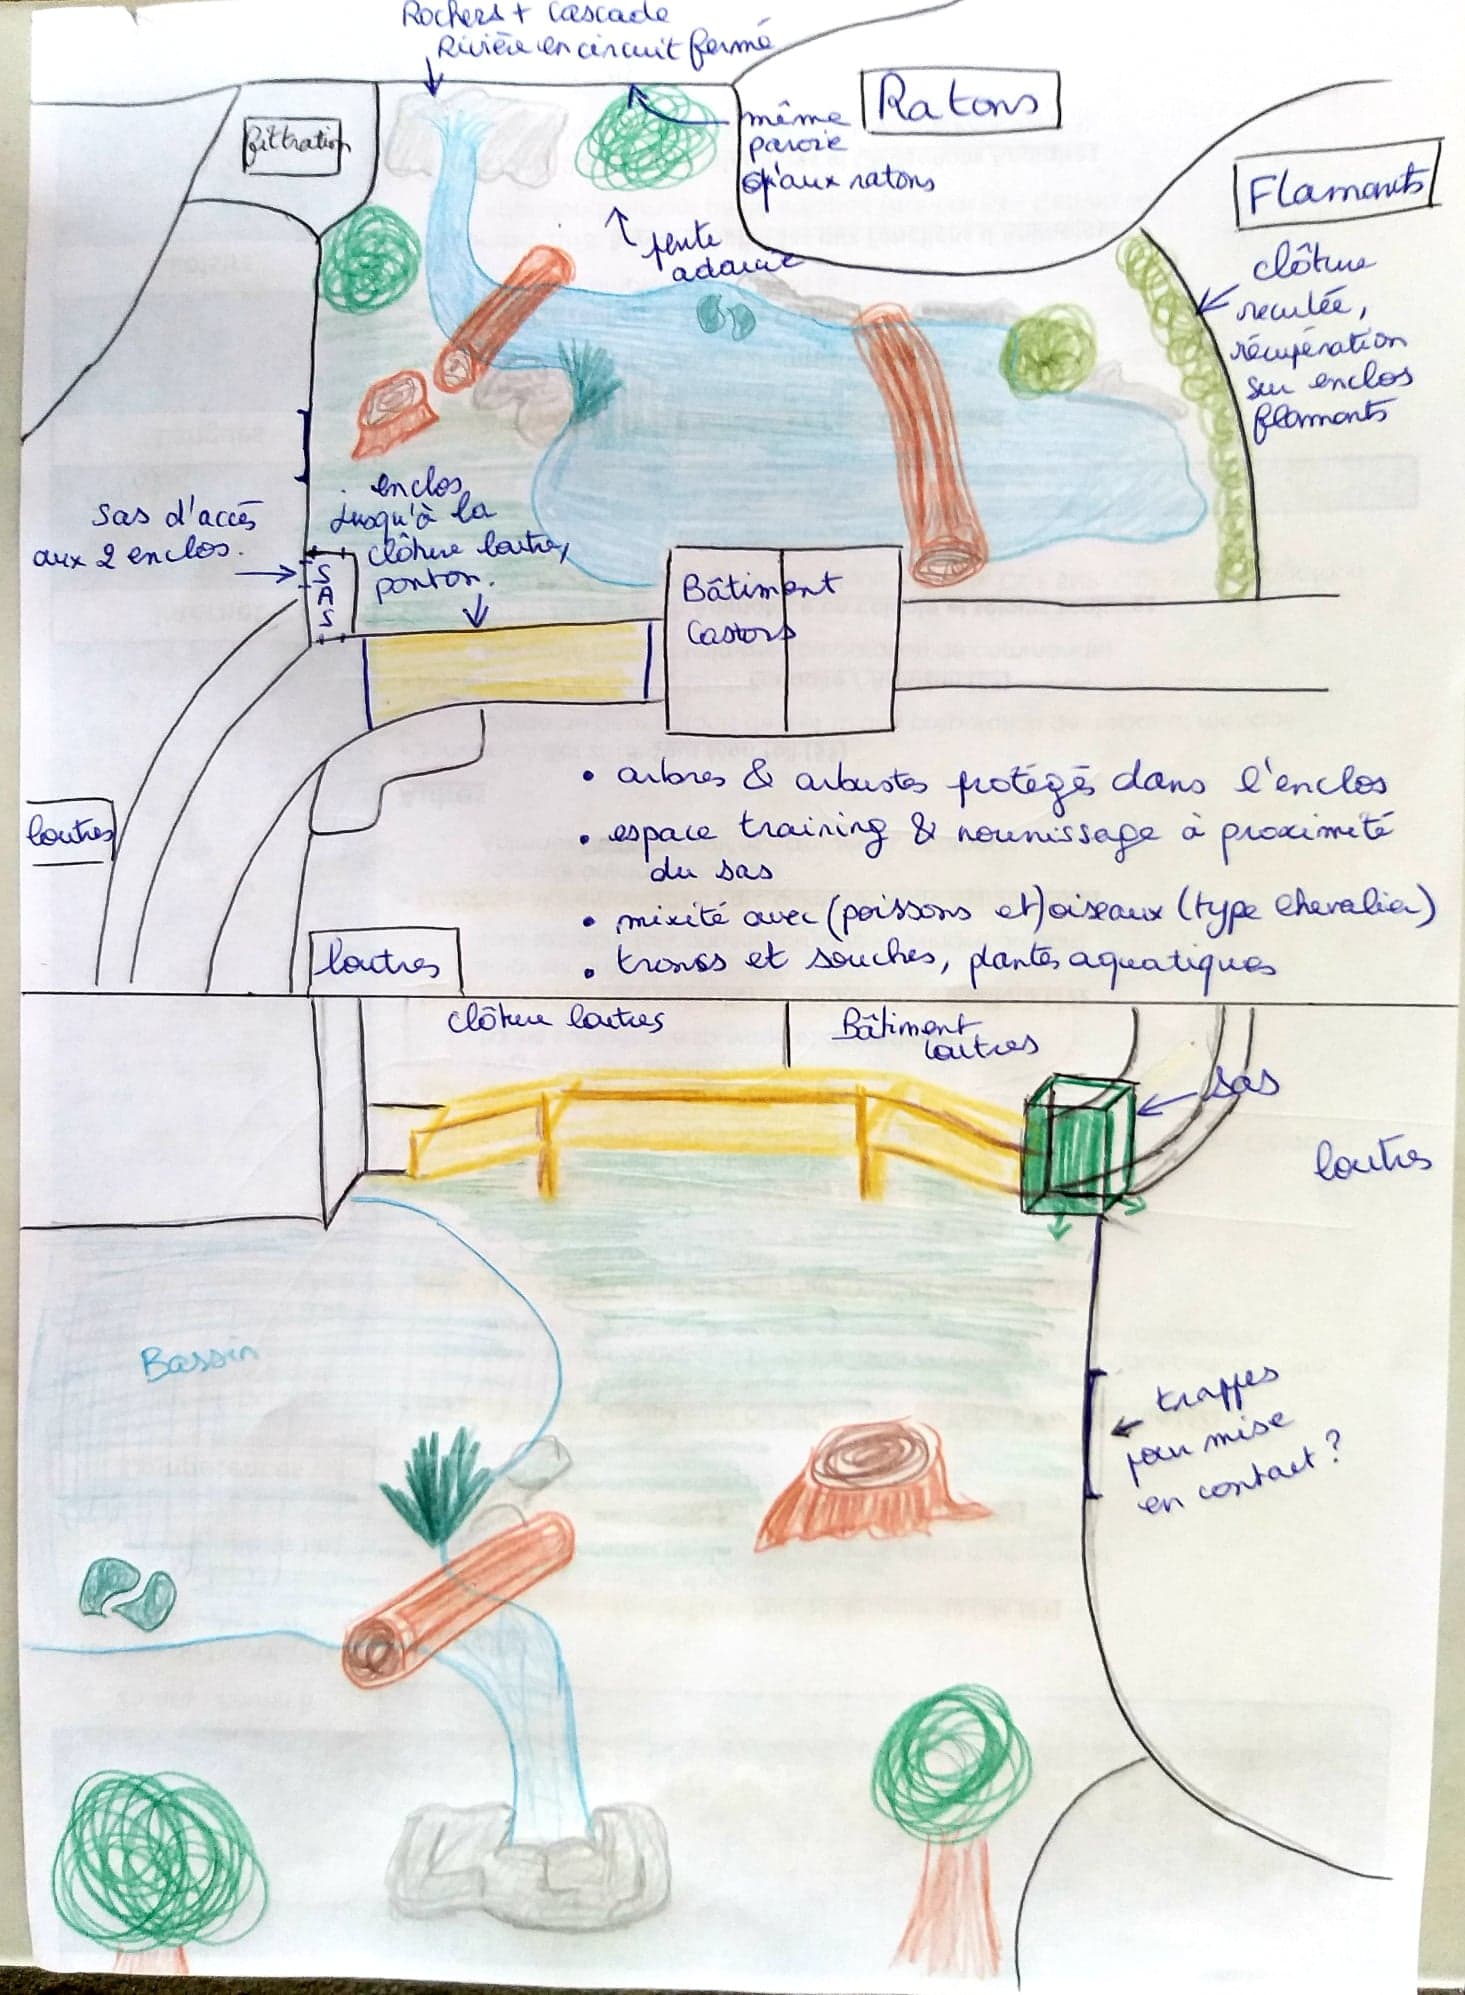 Rochers + Cascade
Rivière en circuit fermé
filtration
même
paroie
qu'aux ratons
Ratons
Flamants
pente
adoucie
clôture
reculée,
récupération
sur enclos
flamants
sas d'accès
aux 2 enclos.
enclos
jusqu'à la
clôture loutre,
ponton.
SAS
Bâtiment
Castors
loutres
• arbres & arbustes protégés dans l'enclos
• espace training & nourrissage à proximité
du sas
• mixité avec (poissons et) oiseaux (type chevalier)
• troncs et souches, plantes aquatiques
loutres
clôture loutres
Bâtiment
loutres
sas
loutres
Bassin
trappes
pour mise
en contact ?